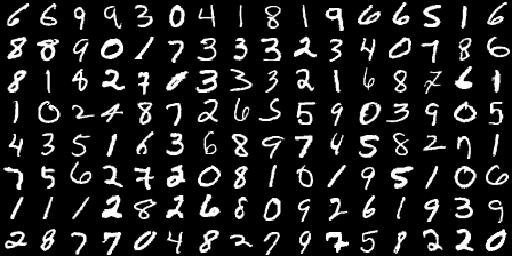 6 6 9 9 3 0 4 1 8 1 9 6 6 5 1 6
8 8 9 0 1 7 3 3 3 2 3 4 0 7 8 6
8 1 8 2 7 0 3 3 3 2 1 6 8 7 6 1
1 0 2 4 8 7 2 6 5 5 9 0 3 9 0 5
4 3 5 1 6 3 6 8 9 7 4 5 8 2 7 1
7 5 6 2 7 2 0 8 1 0 1 9 5 1 0 6
1 1 1 2 8 2 6 8 0 9 2 6 1 9 3 9
2 8 7 7 0 4 8 2 7 9 7 5 8 2 2 0